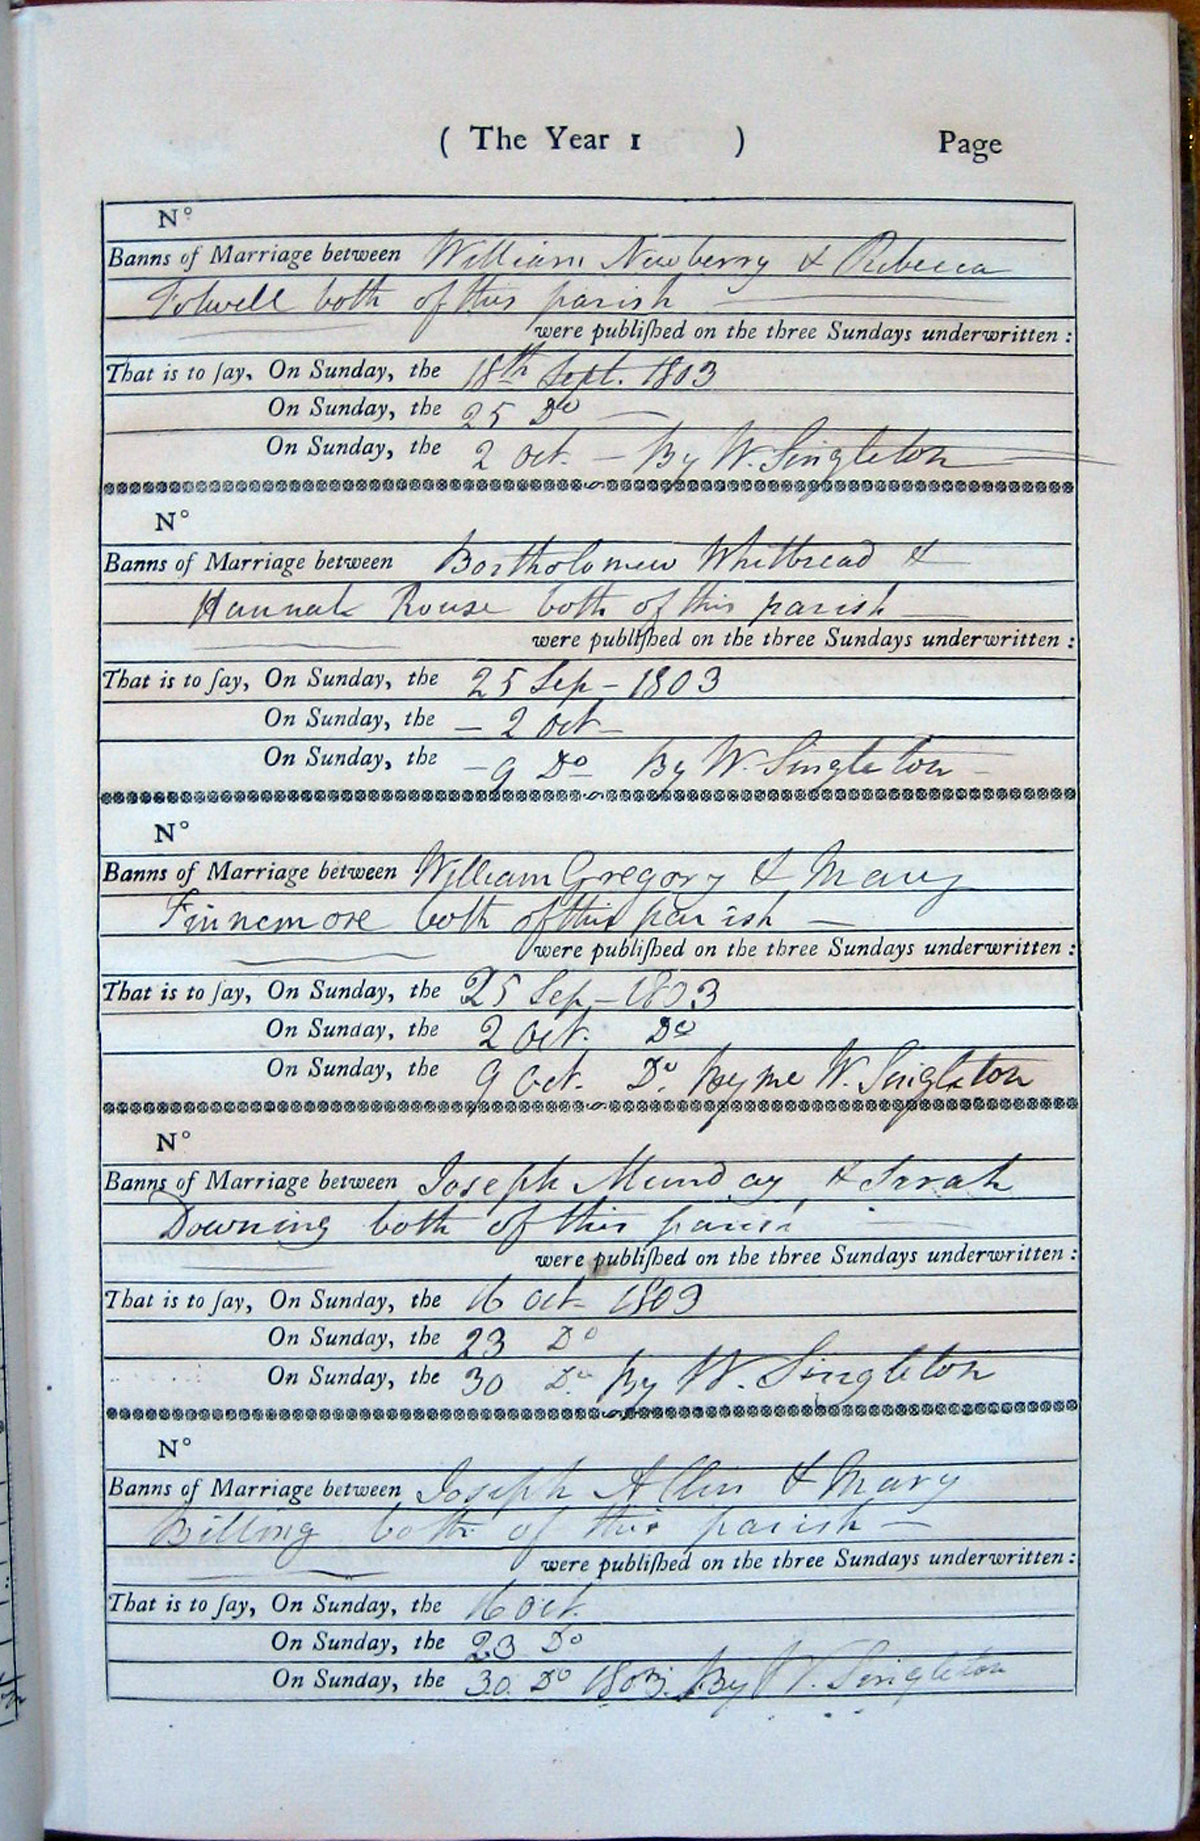 ( The Year 1 ) Page
N°
Banns of Marriage between William Newberry & Rebecca
Folwell both of this parish
were publiſhed on the three Sundays underwritten:
That is to ſay, On Sunday, the 18th Sept. 1803
On Sunday, the 25 Do
On Sunday, the 2 Oct. — By W. Singleton
N°
Banns of Marriage between Bartholomew Whitbread &
Hannah Rouse both of this parish
were publiſhed on the three Sundays underwritten:
That is to ſay, On Sunday, the 25 Sep — 1803
On Sunday, the — 2 Oct —
On Sunday, the — 9 Do — By W. Singleton —
N°
Banns of Marriage between William Gregory & Mary
Finnemore both of this parish —
were publiſhed on the three Sundays underwritten:
That is to ſay, On Sunday, the 25 Sep — 1803
On Sunday, the 2 Oct. Do
On Sunday, the 9 Oct. Do. by me W. Singleton
N°
Banns of Marriage between Joseph Munday & Sarah
Downing both of this parish
were publiſhed on the three Sundays underwritten:
That is to ſay, On Sunday, the 16 Oct — 1803
On Sunday, the 23 Do
On Sunday, the 30 Do. By W. Singleton
N°
Banns of Marriage between Joseph Allin & Mary
Billing both of this parish —
were publiſhed on the three Sundays underwritten:
That is to ſay, On Sunday, the 16 Oct.
On Sunday, the 23 Do
On Sunday, the 30. Do 1803. By W. Singleton